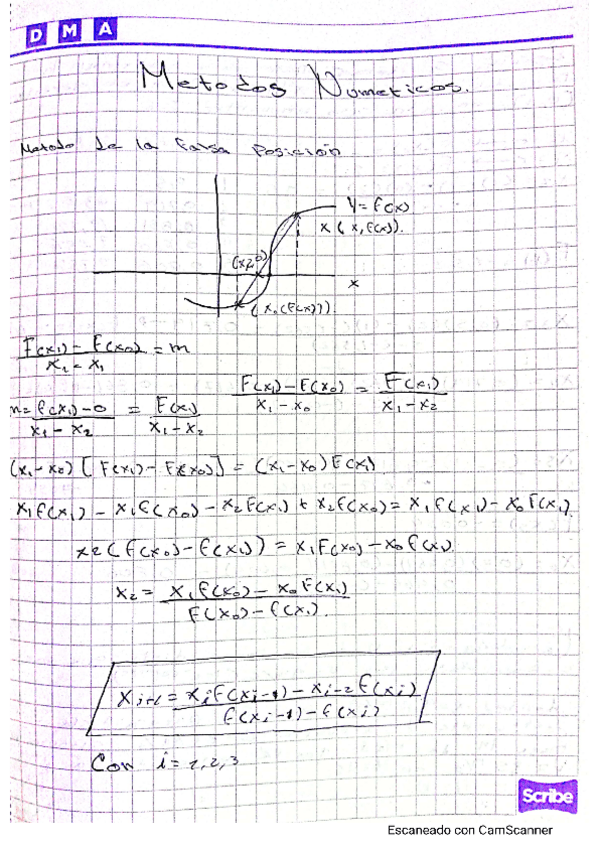 D M A
Metodos Numericos.
Metodo de la Falsa Posición
Y = f(x)
x (x, f(x)).
(x2,0)
x
(x0 (f(x))).
F(x1) - F(x0) / x1 - x1 = m
m = f(x1) - 0 / x1 - x2 = F(x1) / x1 - x2
F(x1) - F(x0) / x1 - x0 = F(x1) / x1 - x2
(x1 - x2) [F(x1) - F(x0)] = (x1 - x0) F(x1)
x1f(x1) - x1f(x0) - x2F(x1) + x2f(x0) = x1f(x1) - x0F(x1)
x2(f(x0) - f(x1)) = x1F(x0) - x0f(x1)
x2 = x1f(x0) - x0F(x1) / F(x0) - f(x1).
xi+1 = xif(xi-1) - xi-2f(xi) / f(xi-1) - f(xi)
Con i = 1,2,3
Scribe
Escaneado con CamScanner